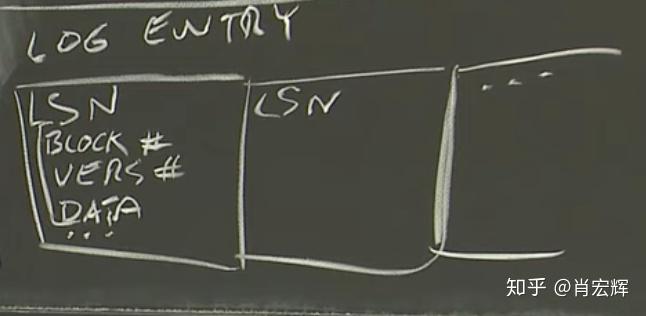 LOG ENTRY
LSN
BLOCK #
VERS #
DATA
...
LSN
...
知乎 @肖宏辉